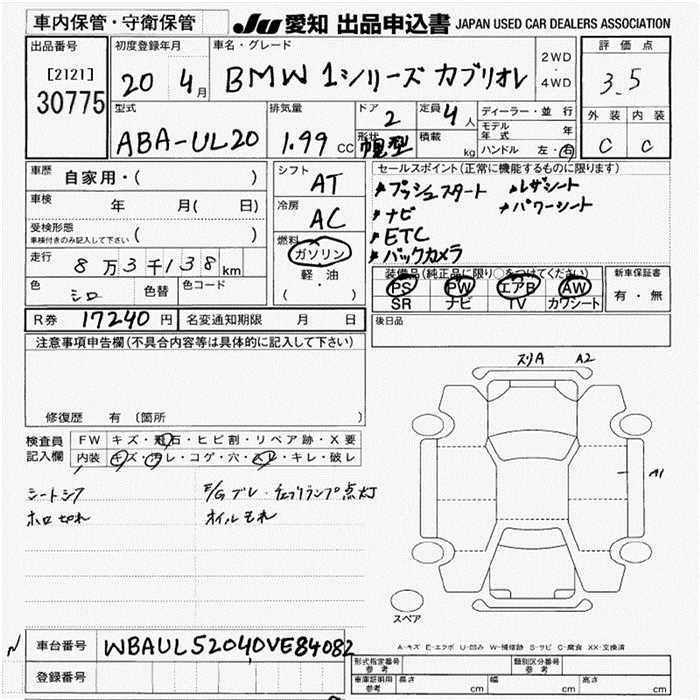 車内保管・守衛保管
JU 愛知 出品申込書 JAPAN USED CAR DEALERS ASSOCIATION
出品番号
[2121]
30775
初度登録年月
20 4月
車名・グレード
BMW 1シリーズ カブリオレ
2WD
・
4WD
評価点
3.5
外装 内装
C C
型式
ABA-UL20
排気量
1.99 CC
ドア
2
形状
幌型
定員
4人
積載
kg
ディーラー・並行
モデル年式 年
ハンドル 左・右
車歴 自家用・( )
車検 年 月( 日)
受検形態
車検付きのみ記入して下さい ( )
走行
8万3千138km
色
シロ
色替
色コード
シフト
AT
冷房
AC
燃料
ガソリン
軽・油
( )
セールスポイント(正常に機能するものに限ります)
プッシュスタート
レザシート
ナビ
パワーシート
ETC
バックカメラ
装備品(純正品に限り○をつけてください)
PS PW エアB AW
SR ナビ TV カワシート
新車保証書
有・無
R券 17240円
名変通知期限 月 日
後日品
注意事項申告欄(不具合内容等は具体的に記入して下さい)
修復歴 有 〔箇所 〕
検査員
記入欄
FW キズ・飛石・ヒビ割・リペア跡・X要
内装 キズ・汚レ・コゲ・穴・スレ・キレ・破レ
シートシワ
ホロ切れ
E/Gブレ・チェックランプ点灯
オイルモれ
スリA A2
A1
スペア
A-キズ E-エクボ U-凹み W-補修跡 S-サビ C-腐食 XX-交換済
車台番号 WBAUL52040VE84082
登録番号
形式指定番号
参考
類別区分番号
参考
車庫証明用
参考
長さ cm 幅 cm 高さ cm